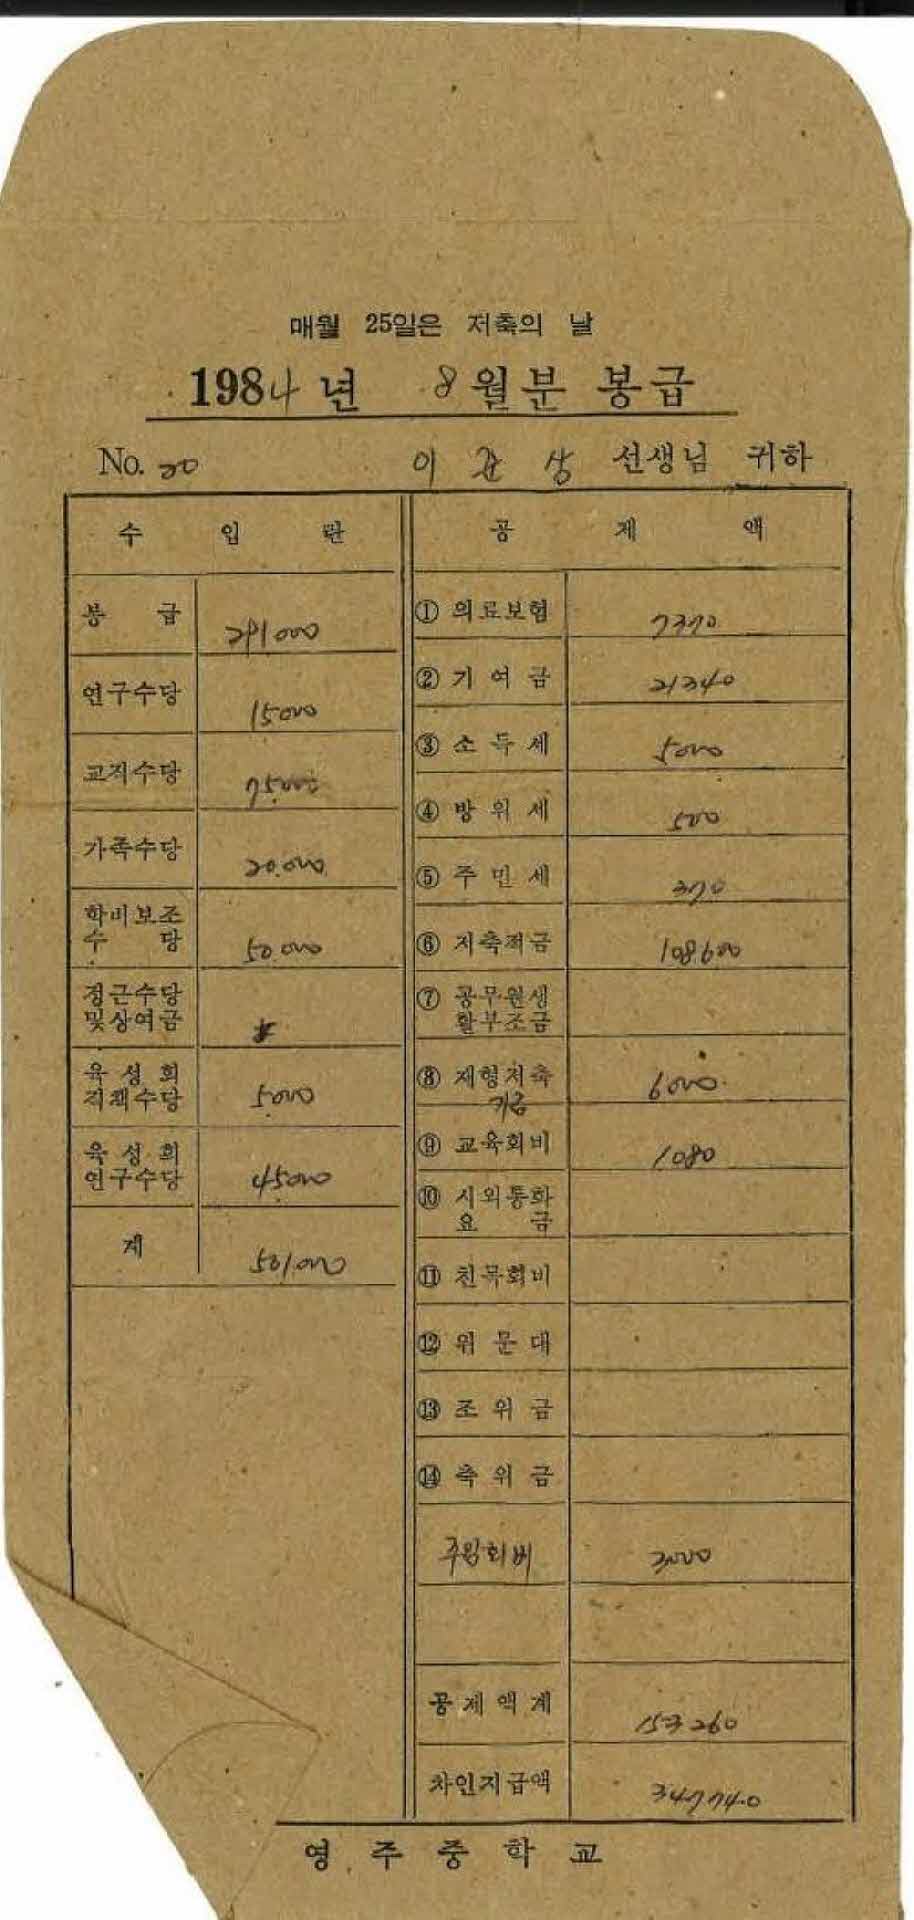 매월 25일은 저축의 날
1984년 8월분 봉급
No. 20
이 상 선생님 귀하
수 입 란
봉 급 291000
연구수당 15000
교직수당 75000
가족수당 20.000
학비보조
수 당 50.000
정근수당
및상여금
육 성 회
직책수당 5.000
육 성 회
연구수당 45000
계 501.000
공 제 액
① 의료보험 7370
② 기 여 금 21340
③ 소 득 세 5000
④ 방 위 세 500
⑤ 주 민 세 370
⑥ 저축적금 108600
⑦ 공무원생
활부조금
⑧ 재형저축 6000
기금
⑨ 교육회비 1080
⑩ 시외통화
요 금
⑪ 친목회비
⑫ 위 문 대
⑬ 조 위 금
⑭ 축 위 금
주임회비 3000
공제액계 153260
차인지급액 347740
영주중학교